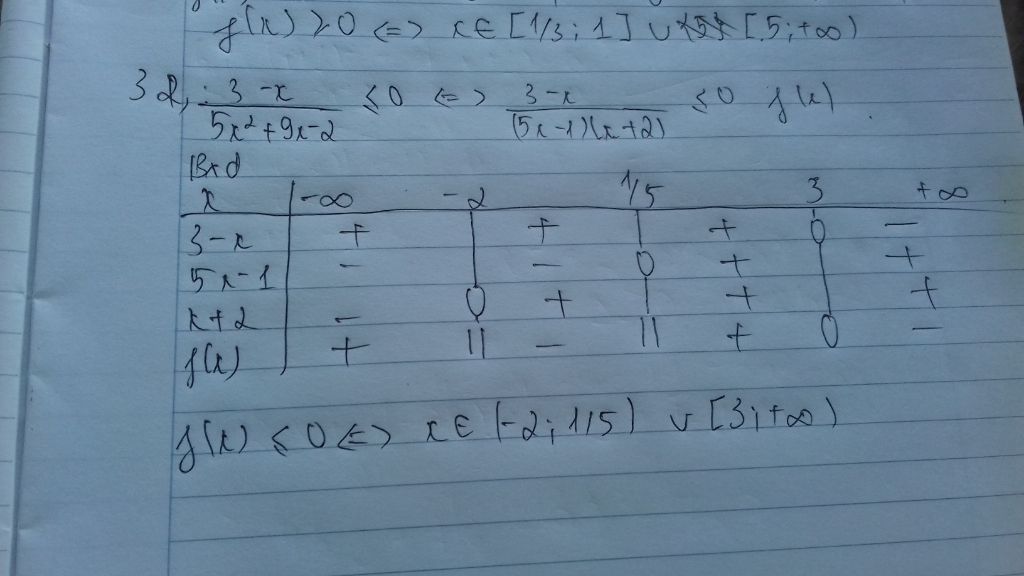 f(x) ≥ 0 <=> x ∈ [1/3; 1] ∪ [5; +∞)
32, 3-x / 5x²+9x-2 ≤ 0 <=> 3-x / (5x-1)(x+2) ≤ 0 f(x)
Bxd
x | -∞ -2 1/5 3 +∞
3-x | + | + | + 0 -
5x-1 | - | - 0 + | +
x+2 | - 0 + | + | +
f(x) | + || - || + 0 -
f(x) ≤ 0 <=> x ∈ (-2; 1/5) ∪ [3; +∞)